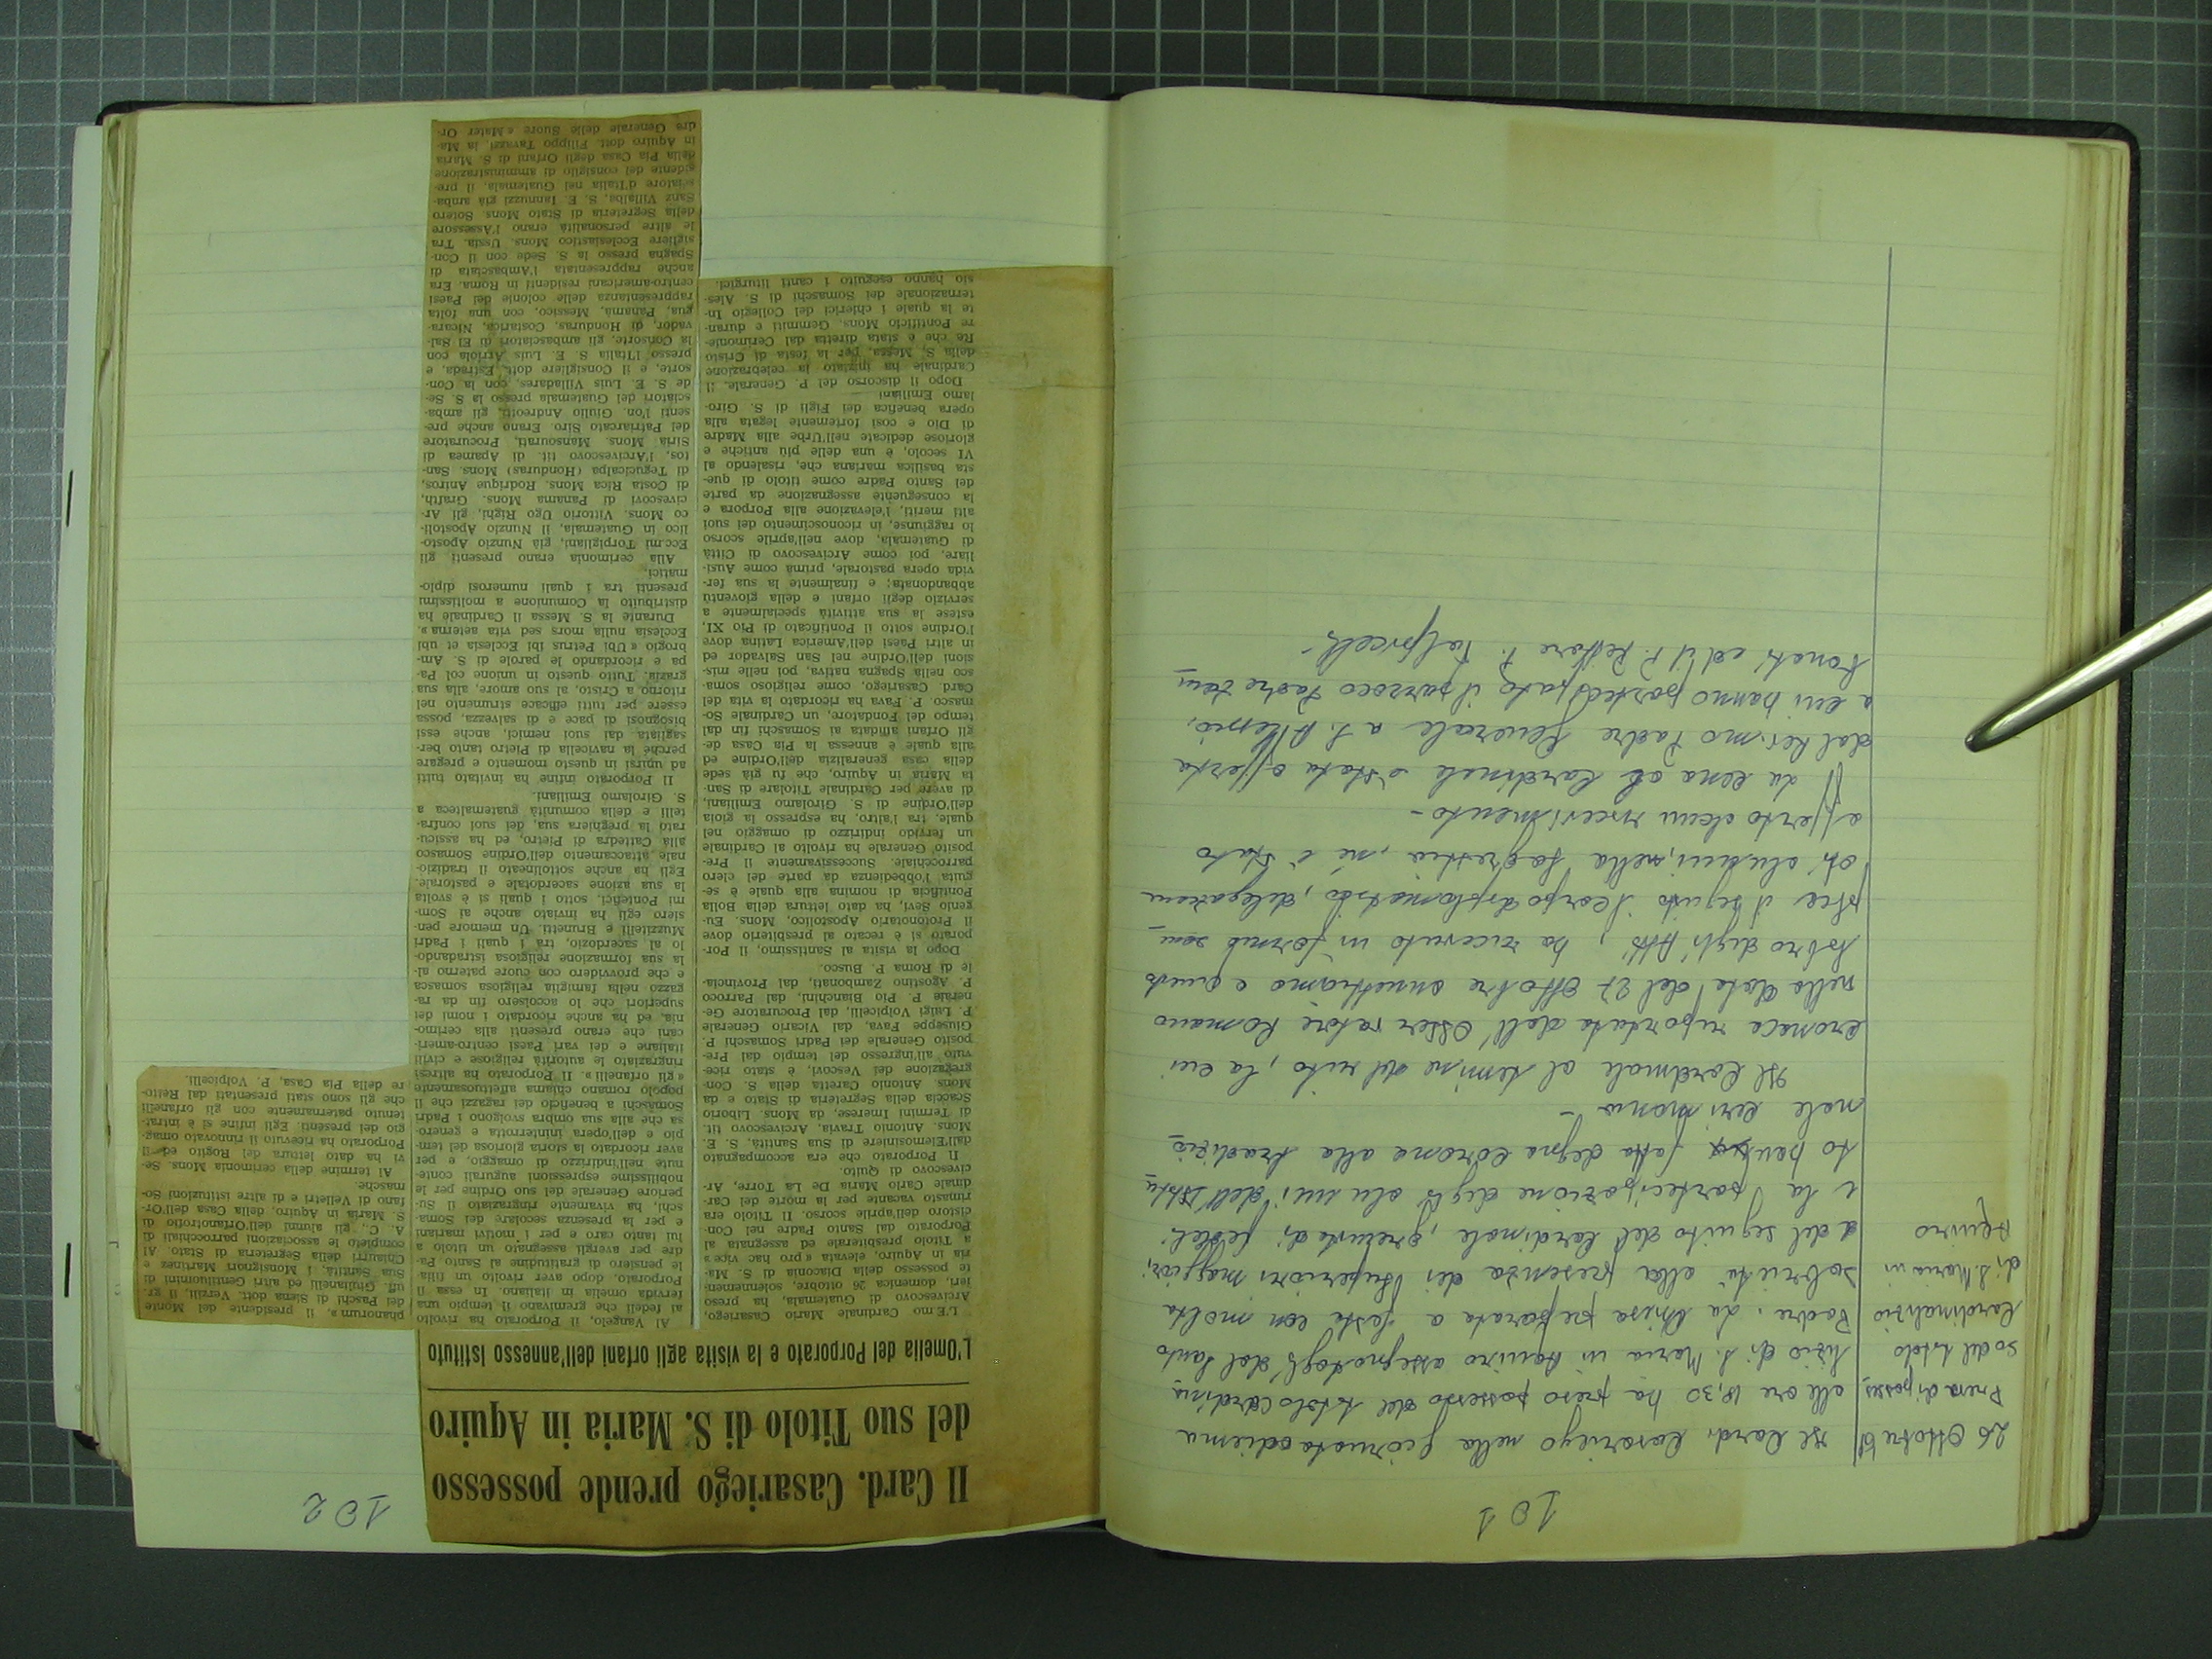 101
26 Ottobre 69
Presa di posses
so del titolo
Cardinalizio
di S. Maria in
Aquiro
Il Card. Casariego nella giornata odierna
alle ore 18,30 ha preso possesso del titolo Cardina
lizio di S. Maria in Aquiro assegnatogli dal Santo
Padre. La Chiesa preparata a festa con molta
sobrietà alla presenza dei Superiori maggiori,
e del seguito del Cardinale, gremita di fedeli
e la partecipazione degli alunni dell'Istitu
to ha fatto degna corona alla tradizio
nale cerimonia -
Il Cardinale al termine del rito, la cui
cronaca riportata dall'Osservatore Romano
nella data del 27 Ottobre annettiamo a questo
libro degli Atti, ha ricevuto in forma sem
plice il seguito il corpo diplomatico, delegazioni
di alunni, nella Sagrestia, né è stato
offerto alcun ricevimento -
La cena al Cardinale è stata offerta
dal Rev.mo Padre Generale a S. Alessio,
a cui hanno partecipato il parroco Padre Zam
bonati ed il P. Rettore P. Volpicelli -
102
Il Card. Casariego prende possesso
del suo Titolo di S. Maria in Aquiro
L'Omelia del Porporato e la visita agli orfani dell'annesso Istituto
L'E.mo Cardinale Mario Casariego,
Arcivescovo di Guatemala, ha preso
ieri, domenica 26 ottobre, solennemen-
te possesso della Diaconia di S. Ma-
ria in Aquiro, elevata « pro hac vice »
a Titolo presbiterale ed assegnata al
Porporato dal Santo Padre nel Con-
cistoro dell'aprile scorso. Il Titolo era
rimasto vacante per la morte del Car-
dinale Carlo Maria De La Torre, Ar-
civescovo di Quito.
Il Porporato che era accompagnato
dall'Elemosiniere di Sua Santità, S. E.
Mons. Antonio Travia, Arcivescovo tit.
di Termini Imerese, da Mons. Liborio
Scaccia della Segreteria di Stato e da
Mons. Antonio Caretta della S. Con-
gregazione dei Vescovi, è stato rice-
vuto all'ingresso del tempio dal Pre-
posito Generale dei Padri Somaschi P.
Giuseppe Fava, dal Vicario Generale
P. Luigi Volpicelli, dal Procuratore Ge-
nerale P. Pio Bianchini, dal Parroco
P. Agostino Zambonati, dal Provincia-
le di Roma P. Busco.
Dopo la visita al Santissimo, il Por-
porato si è recato al presbiterio dove
il Protonotario Apostolico, Mons. Eu-
genio Sevi, ha dato lettura della Bolla
Pontificia di nomina alla quale è se-
guita l'obbedienza da parte del clero
parrocchiale. Successivamente il Pre-
posito Generale ha rivolto al Cardinale
un fervido indirizzo di omaggio nel
quale, tra l'altro, ha espresso la gioia
dell'Ordine di S. Girolamo Emiliani,
di avere per Cardinale Titolare di San-
ta Maria in Aquiro, che fu già sede
della casa generalizia dell'Ordine ed
alla quale è annessa la Pia Casa de-
gli Orfani affidata ai Somaschi fin dal
tempo del Fondatore, un Cardinale So-
masco. P. Fava ha ricordato la vita del
Card. Casariego, come religioso soma-
sco nella Spagna nativa, poi nelle mis-
sioni dell'Ordine nel San Salvador ed
in altri Paesi dell'America Latina dove
l'Ordine sotto il Pontificato di Pio XI,
estese la sua attività specialmente a
servizio degli orfani e della gioventù
abbandonata; e finalmente la sua fer-
vida opera pastorale, prima come Ausi-
liare, poi come Arcivescovo di Città
di Guatemala, dove nell'aprile scorso
lo raggiunse, in riconoscimento dei suoi
alti meriti, l'elevazione alla Porpora e
la conseguente assegnazione da parte
del Santo Padre come titolo di que-
sta basilica mariana che, risalendo al
VI secolo, è una delle più antiche e
gloriose dedicate nell'Urbe alla Madre
di Dio e così fortemente legata alla
opera benefica dei Figli di S. Giro-
lamo Emiliani
Dopo il discorso del P. Generale, il
Cardinale ha iniziato la celebrazione
della S. Messa, per la festa di Cristo
Re che è stata diretta dal Cerimonie-
re Pontificio Mons. Gemmiti e duran-
te la quale i chierici del Collegio In-
ternazionale dei Somaschi di S. Ales-
sio hanno eseguito i canti liturgici.
Al Vangelo, il Porporato ha rivolto
ai fedeli che gremivano il tempio una
fervida omelia in italiano. In essa il
Porporato, dopo aver rivolto un filia-
le pensiero di gratitudine al Santo Pa-
dre per avergli assegnato un titolo a
lui tanto caro e per i motivi mariani
e per la presenza secolare dei Soma-
schi, ha vivamente ringraziato il Su-
periore Generale del suo Ordine per le
nobilissime espressioni augurali conte-
nute nell'indirizzo di omaggio, e per
aver ricordato la storia gloriosa del tem-
pio e dell'opera ininterrotta e genero-
sa che alla sua ombra svolgono i Padri
Somaschi a beneficio dei ragazzi che il
popolo romano chiama affettuosamente
« gli orfanelli ». Il Porporato ha altresì
ringraziato le autorità religiose e civili
italiane e dei vari Paesi centro-ameri-
cani che erano presenti alla cerimo-
nia, ed ha anche ricordato i nomi dei
superiori che lo accolsero fin da ra-
gazzo nella famiglia religiosa somasca
e che provvidero con cuore paterno al-
la sua formazione religiosa istradando-
lo al sacerdozio, tra i quali i Padri
Muzzitelli e Brunetti. Un memore pen-
siero egli ha inviato anche ai Som-
mi Pontefici, sotto i quali si è svolta
la sua azione sacerdotale e pastorale.
Egli ha anche sottolineato il tradizio-
nale attaccamento dell'Ordine Somasco
alla Cattedra di Pietro, ed ha assicu-
rato la preghiera sua, dei suoi confra-
telli e della comunità guatemalteca a
S. Girolamo Emiliani.
Il Porporato infine ha invitato tutti
ad unirsi in questo momento e pregare
perché la navicella di Pietro tanto ber-
sagliata dai suoi nemici, anche essi
bisognosi di pace e di salvezza, possa
essere per tutti efficace strumento nel
ritorno a Cristo, al suo amore, alla sua
grazia. Tutto questo in unione col Pa-
pa e ricordando le parole di S. Am-
brogio « Ubi Petrus ibi Ecclesia et ubi
Ecclesia nulla mors sed vita aeterna ».
Durante la S. Messa il Cardinale ha
distribuito la Comunione a moltissimi
presenti tra i quali numerosi diplo-
matici.
Alla cerimonia erano presenti gli
Ecc.mi Torpigliani, già Nunzio Aposto-
lico in Guatemala, il Nunzio Apostoli-
co Mons. Vittorio Ugo Righi, gli Ar-
civescovi di Panama Mons. Grafth,
di Costa Rica Mons. Rodrique Antros,
di Tegucicalpa (Honduras) Mons. San-
tos, l'Arcivescovo tit. di Apamea di
Siria Mons. Mansourati, Procuratore
del Patriarcato Siro. Erano anche pre-
senti l'on. Giulio Andreotti, gli amba-
sciatori del Guatemala presso la S. Se-
de S. E. Luis Villadares, con la Con-
sorte, e il Consigliere dott. Estrada, e
presso l'Italia S. E. Luis Arriola con
la Consorte, gli ambasciatori di El Sal-
vador, di Honduras, Costarica, Nicara-
gua, Panamà, Messico, con una folta
rappresentanza delle colonie dei Paesi
centro-americani residenti in Roma. Era
anche rappresentata l'Ambasciata di
Spagna presso la S. Sede con il Con-
sigliere Ecclesiastico Mons. Ussia. Tra
le altre personalità erano l'Assessore
della Segreteria di Stato Mons. Sotero
Sanz Villalba, S. E. Iannuzzi già amba-
sciatore d'Italia nel Guatemala, il pre-
sidente del consiglio di amministrazione
della Pia Casa degli Orfani di S. Maria
in Aquiro dott. Filippo Tavazzi, la Ma-
dre Generale delle Suore « Mater Or-
phanorum », il presidente del Monte
dei Paschi di Siena dott. Verzili, il gr.
uff. Giulianelli ed altri Gentiluomini di
Sua Santità, i Monsignori Martinez e
Chiaurri della Segreteria di Stato. Al
completo le associazioni parrocchiali di
A. C., gli alunni dell'Orfanotrofio di
S. Maria in Aquiro, della Casa dell'Or-
fano di Velletri e di altre istituzioni So-
masche.
Al termine della cerimonia Mons. Se-
vi ha dato lettura del Rogito ed il
Porporato ha ricevuto il rinnovato omag-
gio dei presenti. Egli infine si è intrat-
tenuto paternamente con gli orfanelli
che gli sono stati presentati dal Retto-
re della Pia Casa, P. Volpicelli.